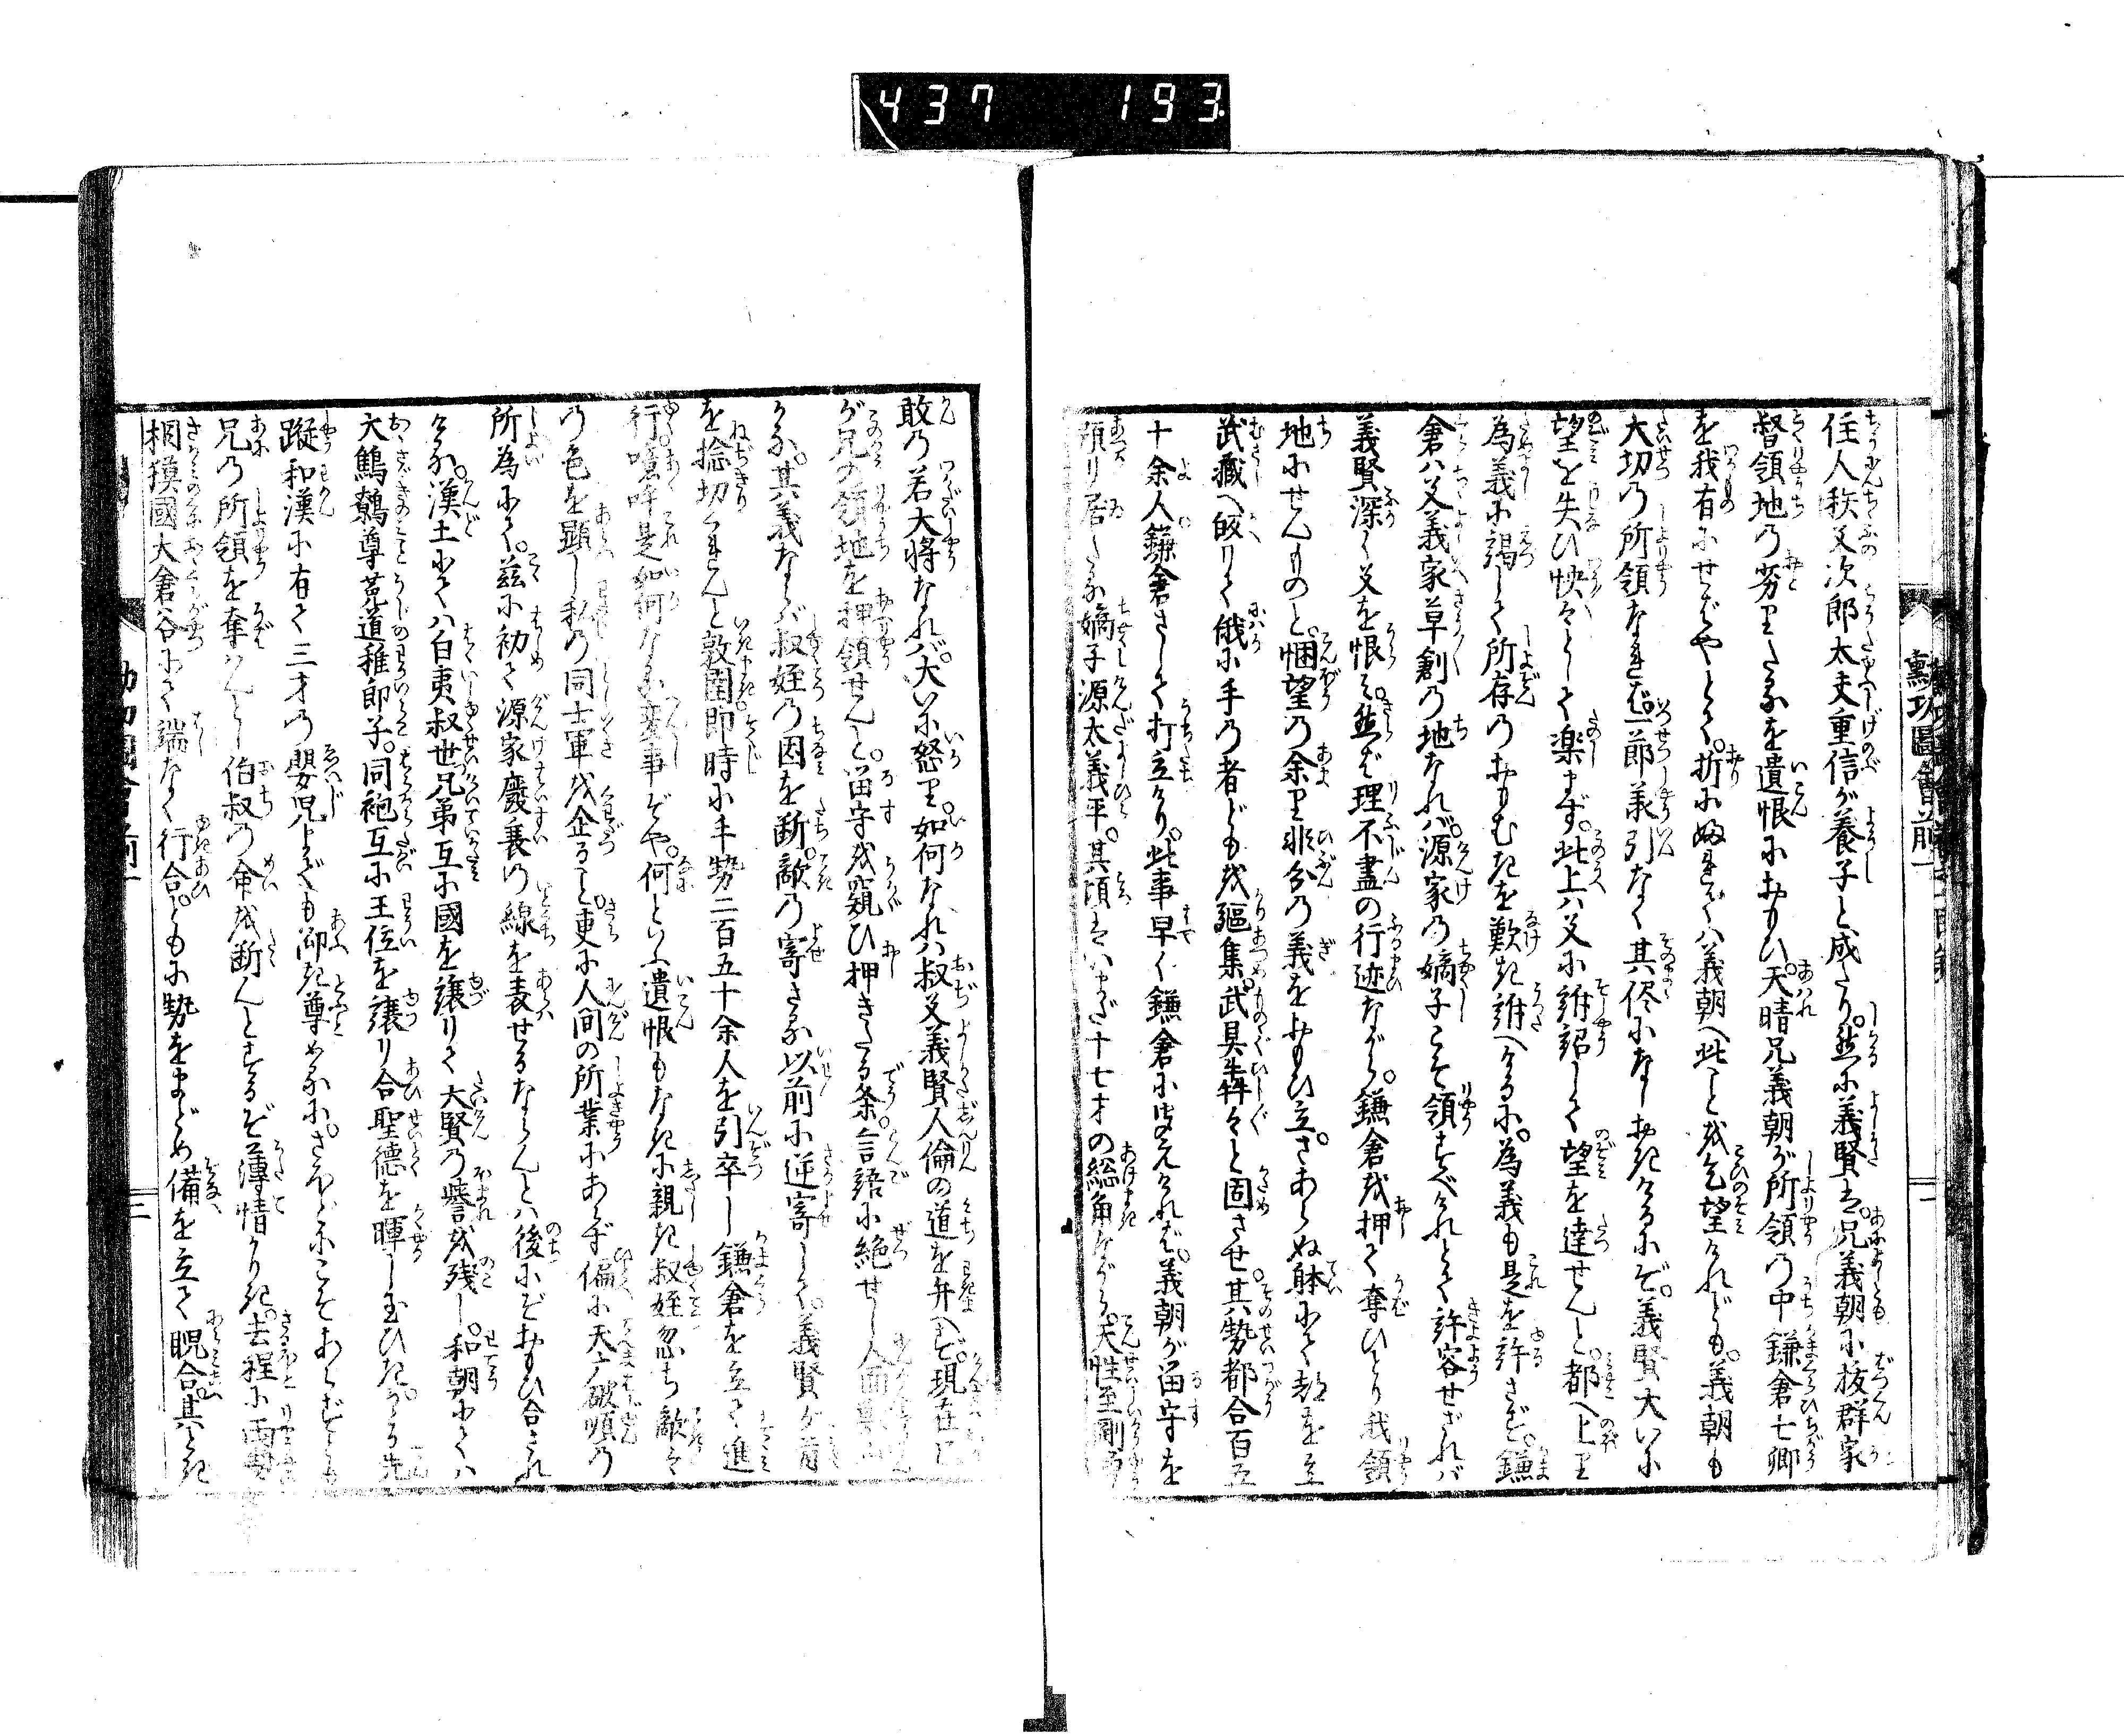 437 193
勲功圖會前
二
住人秩父次郎太夫重信が養子と成たり。然に義賢は。兄義朝に抜群家
督領地の劣りたるを遺恨におもひ。天晴兄義朝が所領の中鎌倉七郷
を我有にせばやとて。折ふれては義朝へ此ことを乞望けれども。義朝も
大切の所領なれば。一節義引なく其侭になしおきけるにぞ。義賢大いに
望を失ひ怏々として楽まず。此上ハ父に訴詔して望を達せんと。都へ上り
為義に謁して所存のおもむきを歎き訴へけるに。為義も是を許さず。鎌
倉ハ父義家草創の地なれバ。源家の嫡子こそ領すべけれとて許容せざれバ
義賢深く父を恨み。然らば理不盡の行迹ながら。鎌倉を押て奪ひとり我領
地にせんものと。悃望の余り非分の義をおもひ立。さあらぬ躰にて都を立
武蔵へ皈りて俄に手の者どもを駈集。武具犇々と固させ。其勢都合百五
十余人鎌倉さして打立けり。此事早く鎌倉に聞えければ。義朝が留守を
預り居たる嫡子源太義平。其頃はいまだ十七才の総角ながら。天性至剛勇
敢の若大将なれバ。大いに怒り。如何なれバ叔父義賢人倫の道を弁へず。現在
が兄の領地を押領せんと。留守を窺ひ押きたる条。言語に絶せし人面獣心
なり。其義ならバ叔姪の因を断。敵の寄ざる以前に逆寄して。義賢が首
を捻切くれんと敦圉即時に手勢二百五十余人を引卒し鎌倉を立て進
行。噫吁是如何なる変事ぞや。何といふ遺恨もなきに親き叔姪忽ち敵々
の色を顕し私の同士軍を企ること。更に人間の所業にあらず偏に天广破旬の
所為にて。茲に初て源家癈衰の線を表せるならんとハ後にぞおもひ合され
ける。漢土にてハ白夷叔世兄弟互に國を譲りて大賢の誉を残し。和朝にてハ
大鷦鷯尊菟道稚郎子。同袍互に王位を譲り合聖徳を暉し玉ひき。かゝる先
蹤和漢に有て三才の嬰児までも仰き尊めるに。さまでにこそあらずとも
兄の所領を奪ハんとし伯叔の命を断んとするぞ薄情かりき。去程に両勢
相摸國大倉谷にて端なく行合。ともに勢をまどめ備を立て睨合。其とき
三